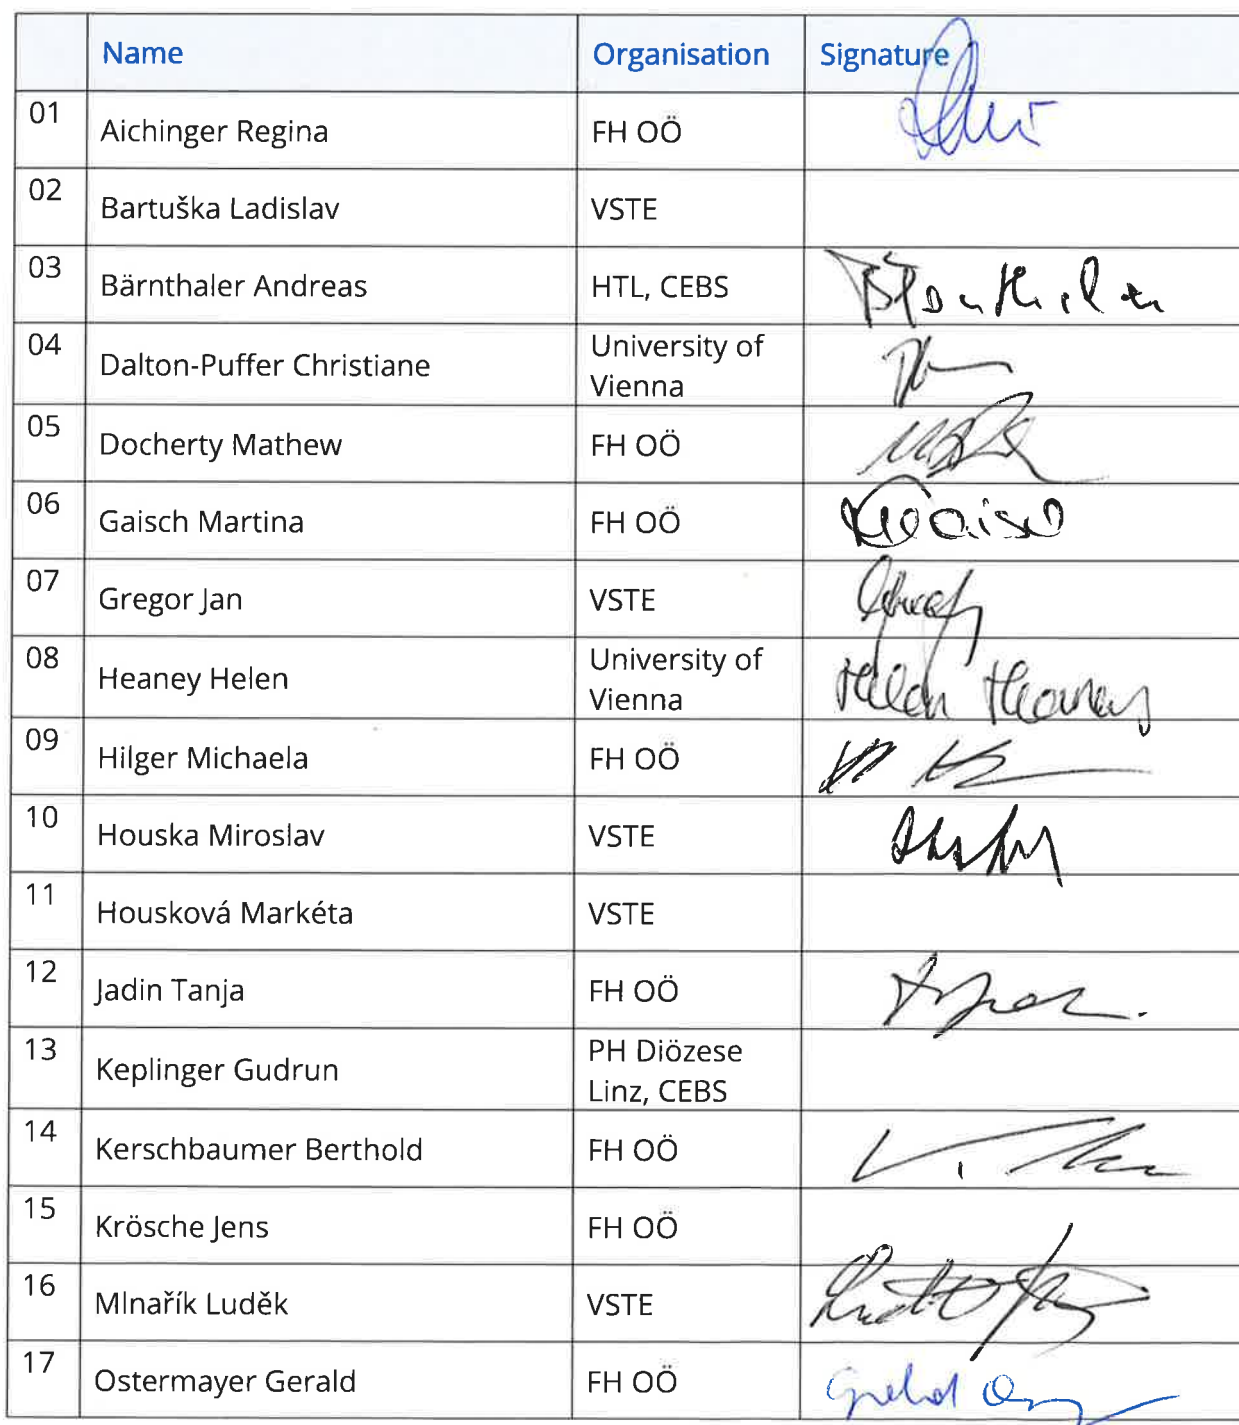 Name Organisation Signature
01 Aichinger Regina FH OÖ
02 Bartuška Ladislav VSTE
03 Bärnthaler Andreas HTL, CEBS
04 Dalton-Puffer Christiane University of
Vienna
05 Docherty Mathew FH OÖ
06 Gaisch Martina FH OÖ
07 Gregor Jan VSTE
08 Heaney Helen University of
Vienna Helen Heaney
09 Hilger Michaela FH OÖ
10 Houska Miroslav VSTE
11 Housková Markéta VSTE
12 Jadin Tanja FH OÖ
13 Keplinger Gudrun PH Diözese
Linz, CEBS
14 Kerschbaumer Berthold FH OÖ
15 Krösche Jens FH OÖ
16 Mlnařík Luděk VSTE
17 Ostermayer Gerald FH OÖ